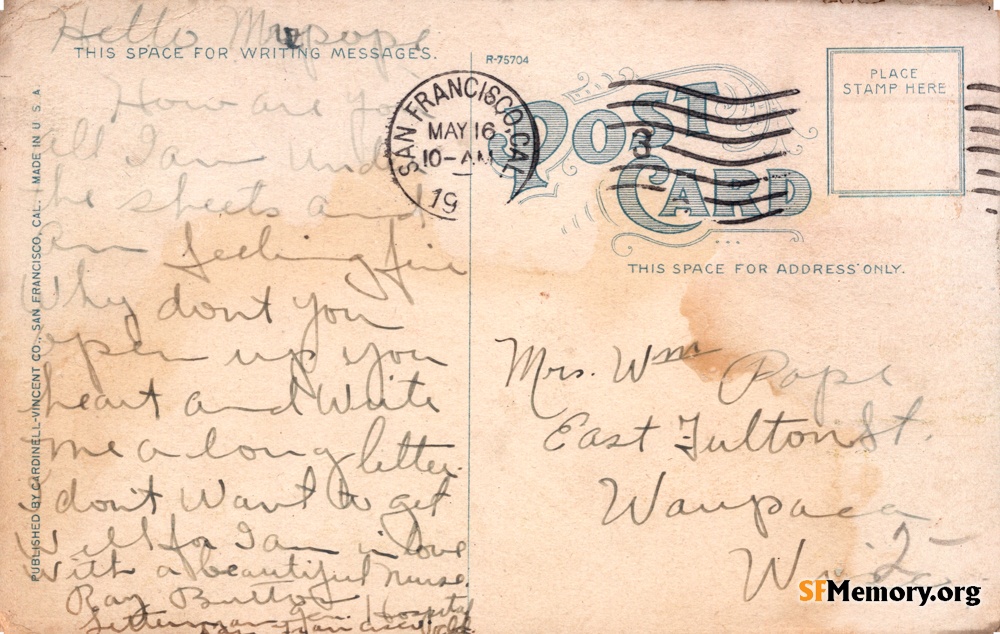 Hello Mrs pope
THIS SPACE FOR WRITING MESSAGES.
How are you
all I am under
the sheets and
am feeling fine
Why dont you
open up you
heart and Write
me a long letter.
I dont want to get
well for I am in love
with a beautiful nurse.
Ray
Letterman Gen Hospital
San Francisco. Calif
PUBLISHED BY CARDINELL-VINCENT CO., SAN FRANCISCO, CAL. MADE IN U. S. A.
R-75704
SAN FRANCISCO, CAL.
MAY 16
10-AM
19
POST
CARD
3
PLACE
STAMP HERE
THIS SPACE FOR ADDRESS ONLY.
Mrs. Wm Pope
East Fulton St.
Waupaca
SFMemory.org